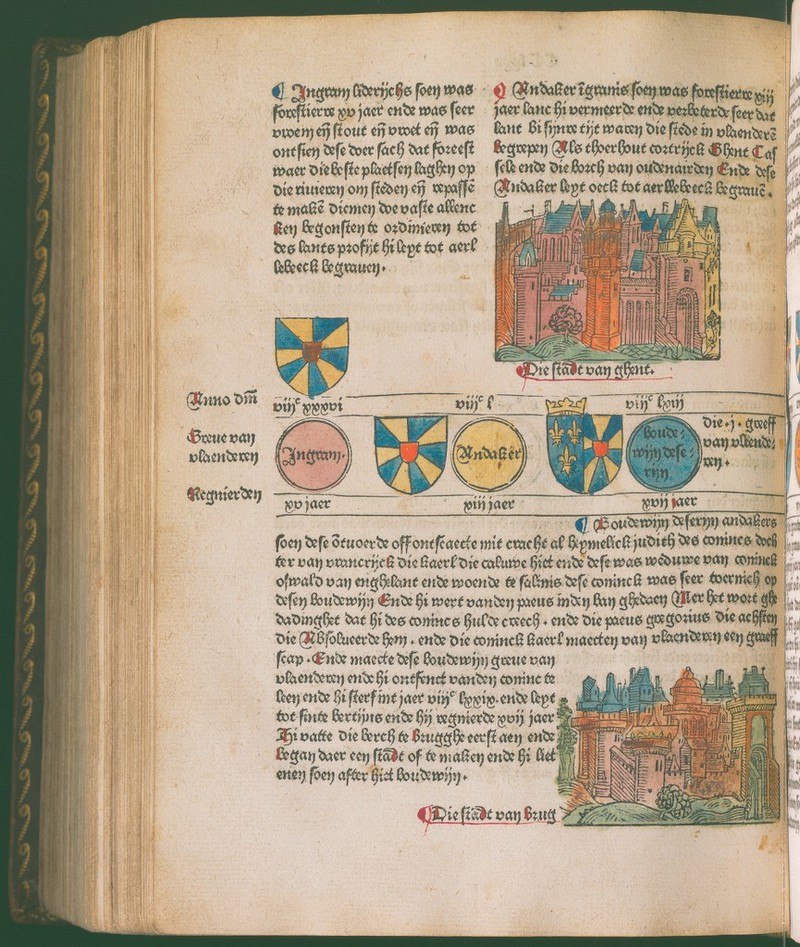 ¶ Ingram liderijchs soen was
forestierre xv jaer ende was seer
vroem eñ stout eñ vroet eñ was
ontsien dese doer sach dat foreest
waer die beste plaetsen laghen op
die riuieren om steden eñ repasse̅
te make̅ diemen doe vaste allenc
ken begonsten te ordinieren tot
des lants profijt hi leyt tot aerl
lebeeck begrauen.
¶ Andaker i̅granis soen was forestierre xiij
jaer lanc hi vermeerde ende verbeterde seer dat
lant Bi sijnre tijt waren die stede in vlaendere̅
begrepen Als thoerhout cortrijck Ghent Cas
sele ende die borch van oudenairden Ende dese
Andaker leyt oeck tot aerllebeeck begraue̅.
¶ Die stadt van ghent.
Anno dm̅
viijᶜ xxxvi
viijᶜ l
viijᶜ lxiij
Greue van
vlaenderen
Ingram.
Andaker
boude⸗
wijn dese⸗
rijn
die .j. greeff
van vlaende⸗
ren.
Regnierden
xv jaer
xiij jaer
xvij jaer
¶ Boudewijn deserijn andakers
soen dese o̅tuoerde off ontscaecte mit cracht al heymelick judith des conincs doch
ter van vrancrijck die kaerl die caluwe hiet ende dese was weduwe van coninck
oswald van enghelant ende woende te salinis dese coninck was seer toernich op
desen boudewijn Ende hi wert vanden paeus inden ban ghedaen Mer het wort ghe
dadinghet dat hi des conincs hulde creech. ende die paeus gregorius die achsten
die Absolueerde hem. ende die coninck kaerl maecten van vlaenderen een graeff
scap. Ende maecte dese boudewijn greue van
vlaenderen ende hi ontfenct vanden coninc te
leen ende hi sterf int jaer viijᶜ lxxix. ende leyt
tot sinte bertijns ende hij regnierde xvij jaer
Hi vatte die berch te brugghe eerst aen ende
began daer een stadt of te maken ende hi liet
enen soen after hiet boudewijn.
¶ Die stadt van brug